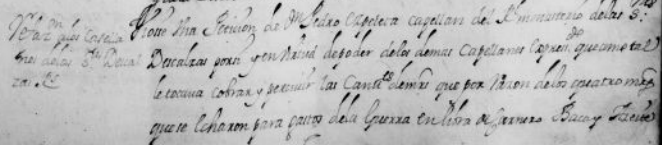 a los Capella
nes de las Descal
zas
Petición de Pedro Ezpeleta capellan del Rl monasterio de las Sras
Descalzas por si y en virtud de poder de los demas Capellanes que como tal
le tocava cobrar y percivir las Cantes de mrs que por raron de los quatro mrs
que se echaron para gastos de la Guerra en libra de Carnero Baca y Tocino